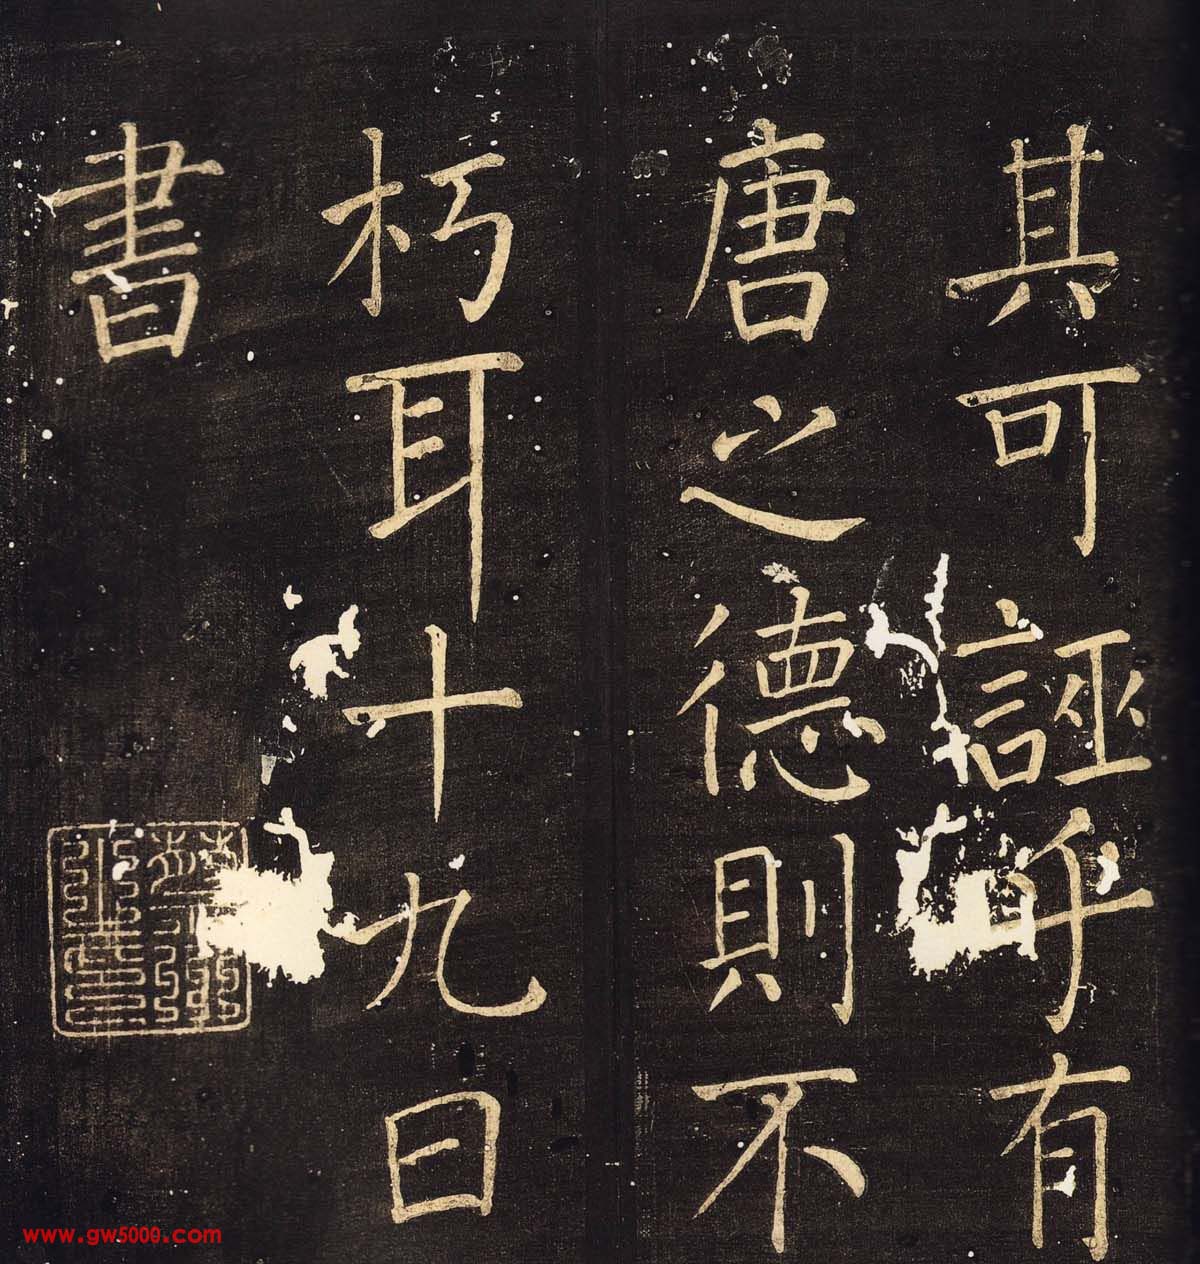 其可誣乎有
唐之德則不
朽耳十九日
書
www.gw5000.com